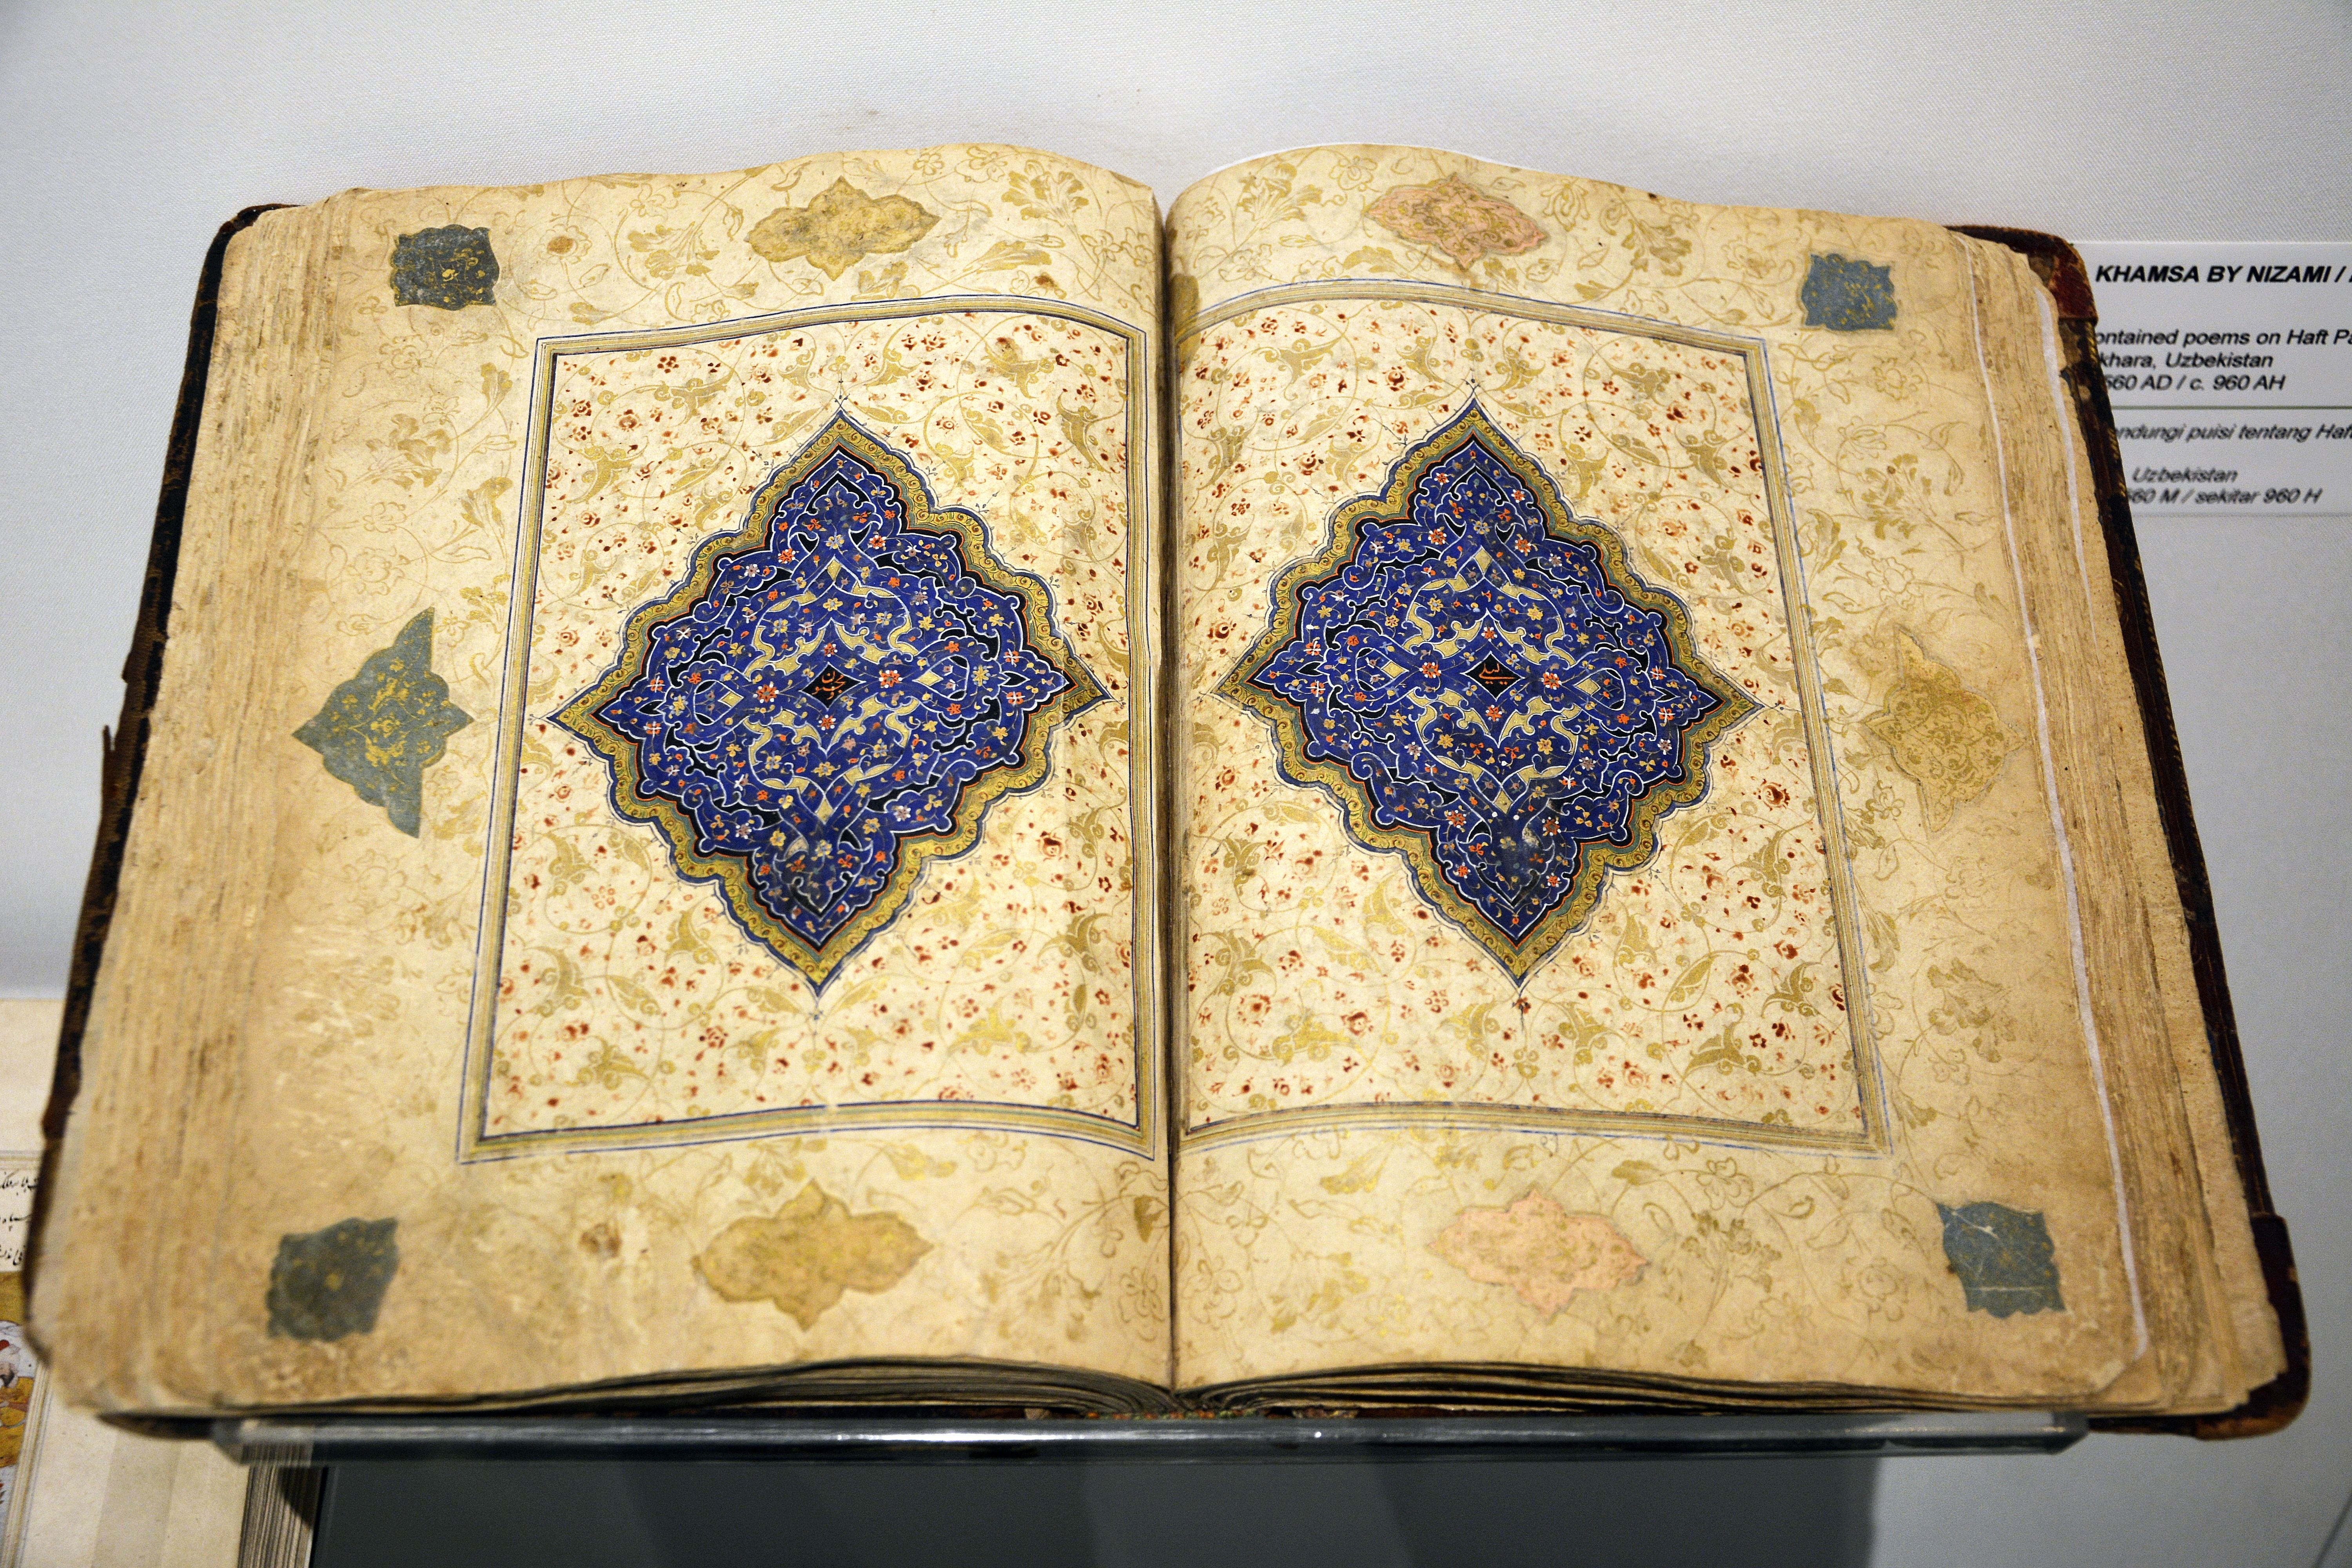 KHAMSA BY NIZAMI /
ontained poems on Haft Pa
khara, Uzbekistan
560 AD / c. 960 AH
endungi puisi tentang Haf
Uzbekistan
560 M / sekitar 960 H
لیلی
مجنون